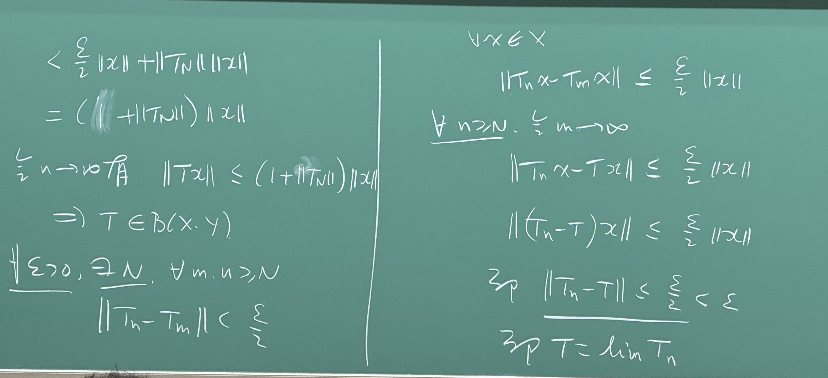 < ε/2 ||x|| + ||T_N|| ||x||
= (1 + ||T_N||) ||x||
令 n→∞ 有 ||Tx|| ≤ (1+||T_N||) ||x||
⇒ T ∈ B(X.Y)
∀ε>0, ∃N. ∀m.n≥N
||T_n - T_m|| < ε/2
∀x∈X
||T_n x - T_m x|| ≤ ε/2 ||x||
∀ n≥N. 令 m→∞
||T_n x - Tx|| ≤ ε/2 ||x||
||(T_n - T)x|| ≤ ε/2 ||x||
即 ||T_n - T|| ≤ ε/2 < ε
即 T = lim T_n